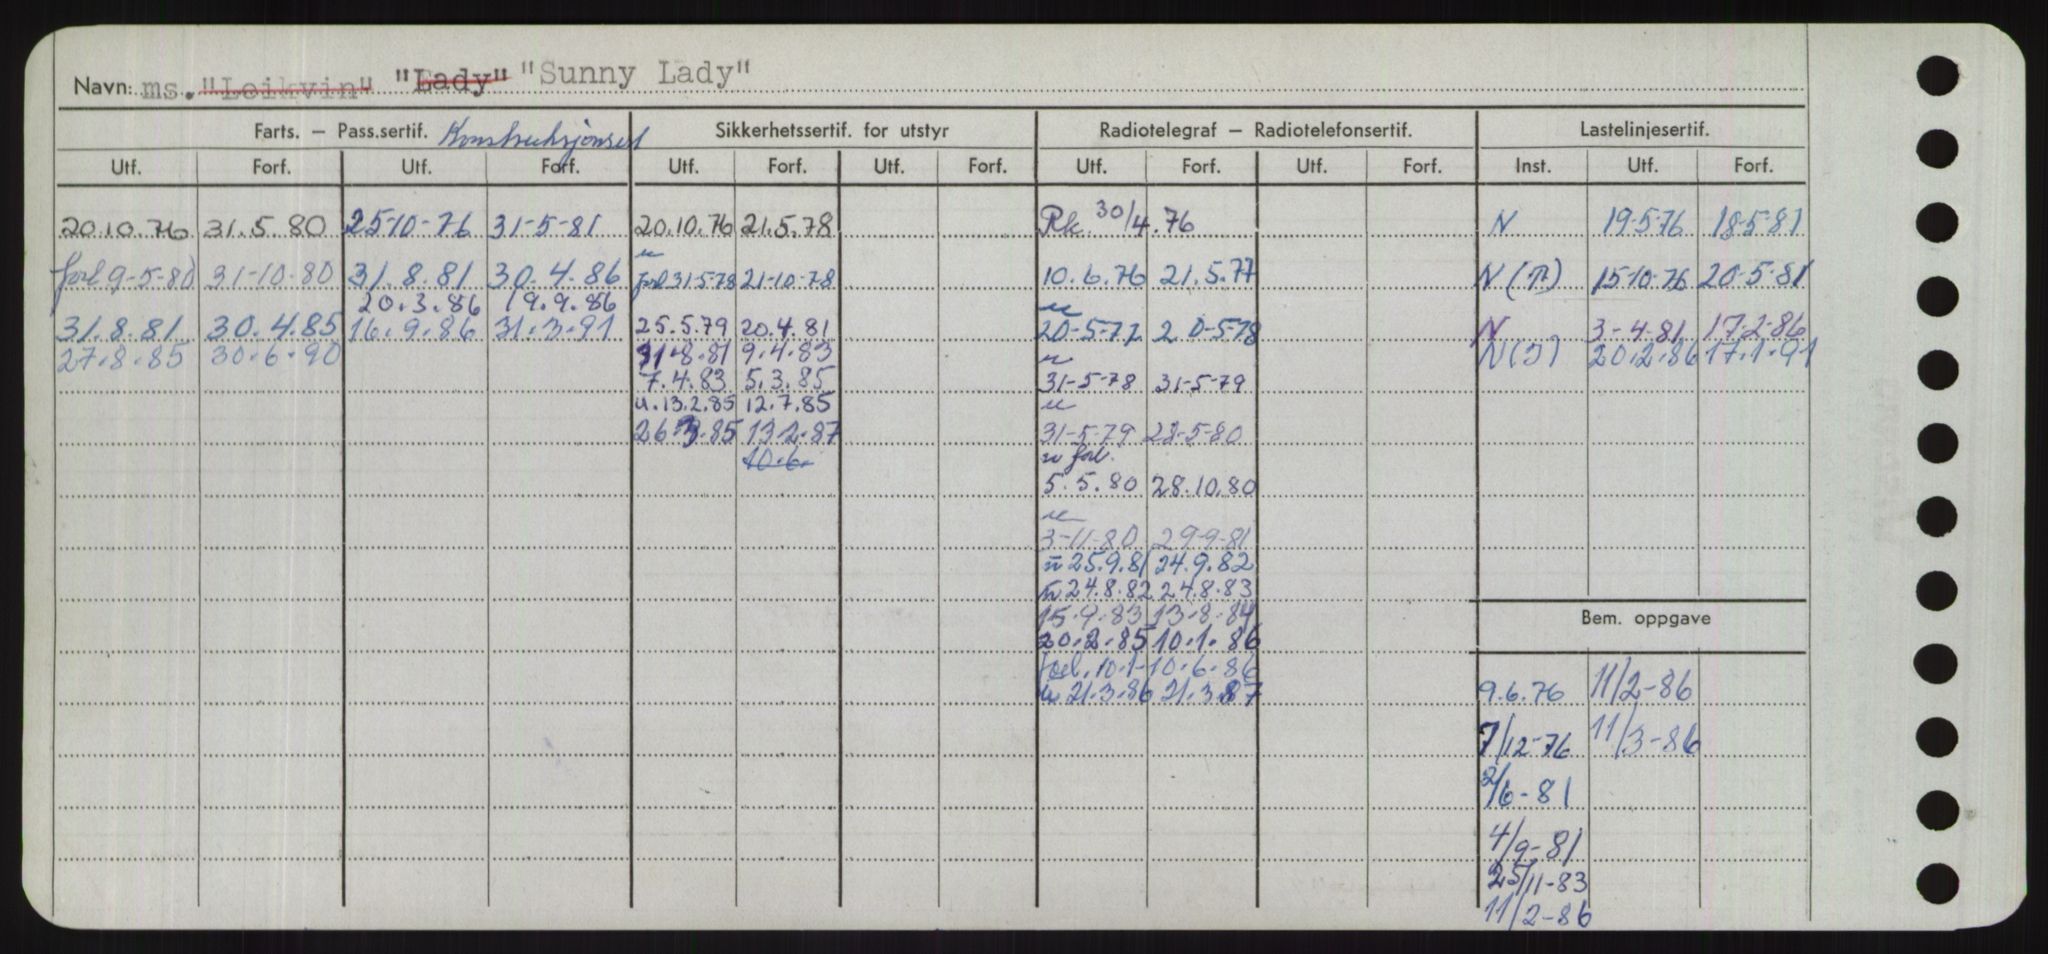 Navn: ms. "Leikvin" "Lady" "Sunny Lady"
Farts. – Pass.sertif. Konstruksjonsert Sikkerhetssertif. for utstyr Radiotelegraf – Radiotelefonsertif. Lastelinjesertif.
Utf. Forf. Utf. Forf. Utf. Forf. Utf. Forf. Utf. Forf. Utf. Forf. Inst. Utf. Forf.
20.10.76 31.5.80 25-10-76 31-5-81 20.10.76 21.5.78 Rk. 30/4.76 N 19-5-76 18-5-81
u
forl 9-5-80 31-10-80 31.8.81 30.4.86 forl 31-5-78 21-10-78 10.6.76 21.5.77 N (T) 15-10-76 20-5-81
20.3.86 19.9.86 u
31.8.81 30.4.85 16.9.86 31.3.91 25.5.79 20.4.81 20-5-77 20-5-78 N 3-4-81 17-2-86
27.8.85 30.6.90 31.8.81 9.4.83 u N(I) 20.2.86 17.1.91
7.4.83 5.3.85 31-5-78 31-5-79
u. 13.2.85 12.7.85 u
26.3.85 13.2.87 31-5-79 28-5-80
10.6. u forl.
5.5.80 28.10.80
u
3-11-80 29-9-81
u 25.9.81 24.9.82
u 24.8.82 24.8.83
15.9.83 13.8.84
Bem. oppgave
20.2.85 10.1.86
forl. 10.1- 10.6.86
u 21.3.86 21.3.87
9.6.76 11/2-86
7/12-76 11/3-86
2/6-81
4/9-81
25/11-83
11/2-86